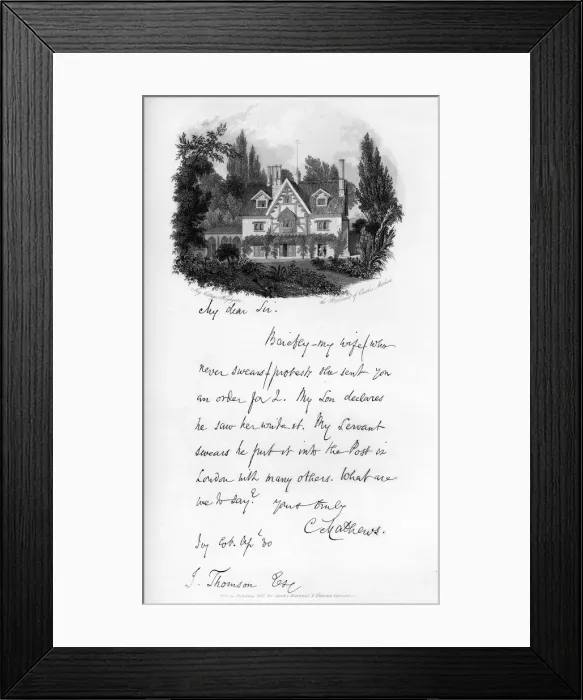 Ivy Cottage, Highgate
the Residence of Charles Mathews
My dear Sir.
Briefly – my wife (who
never swears) protests she sent you
an order for 2. My Son declares
he saw her write it. My Servant
swears he put it into the Post in
London with many others. What are
we to say? Yours truly
C Mathews.
Ivy Cot. Apl 30
J. Thomson Esq